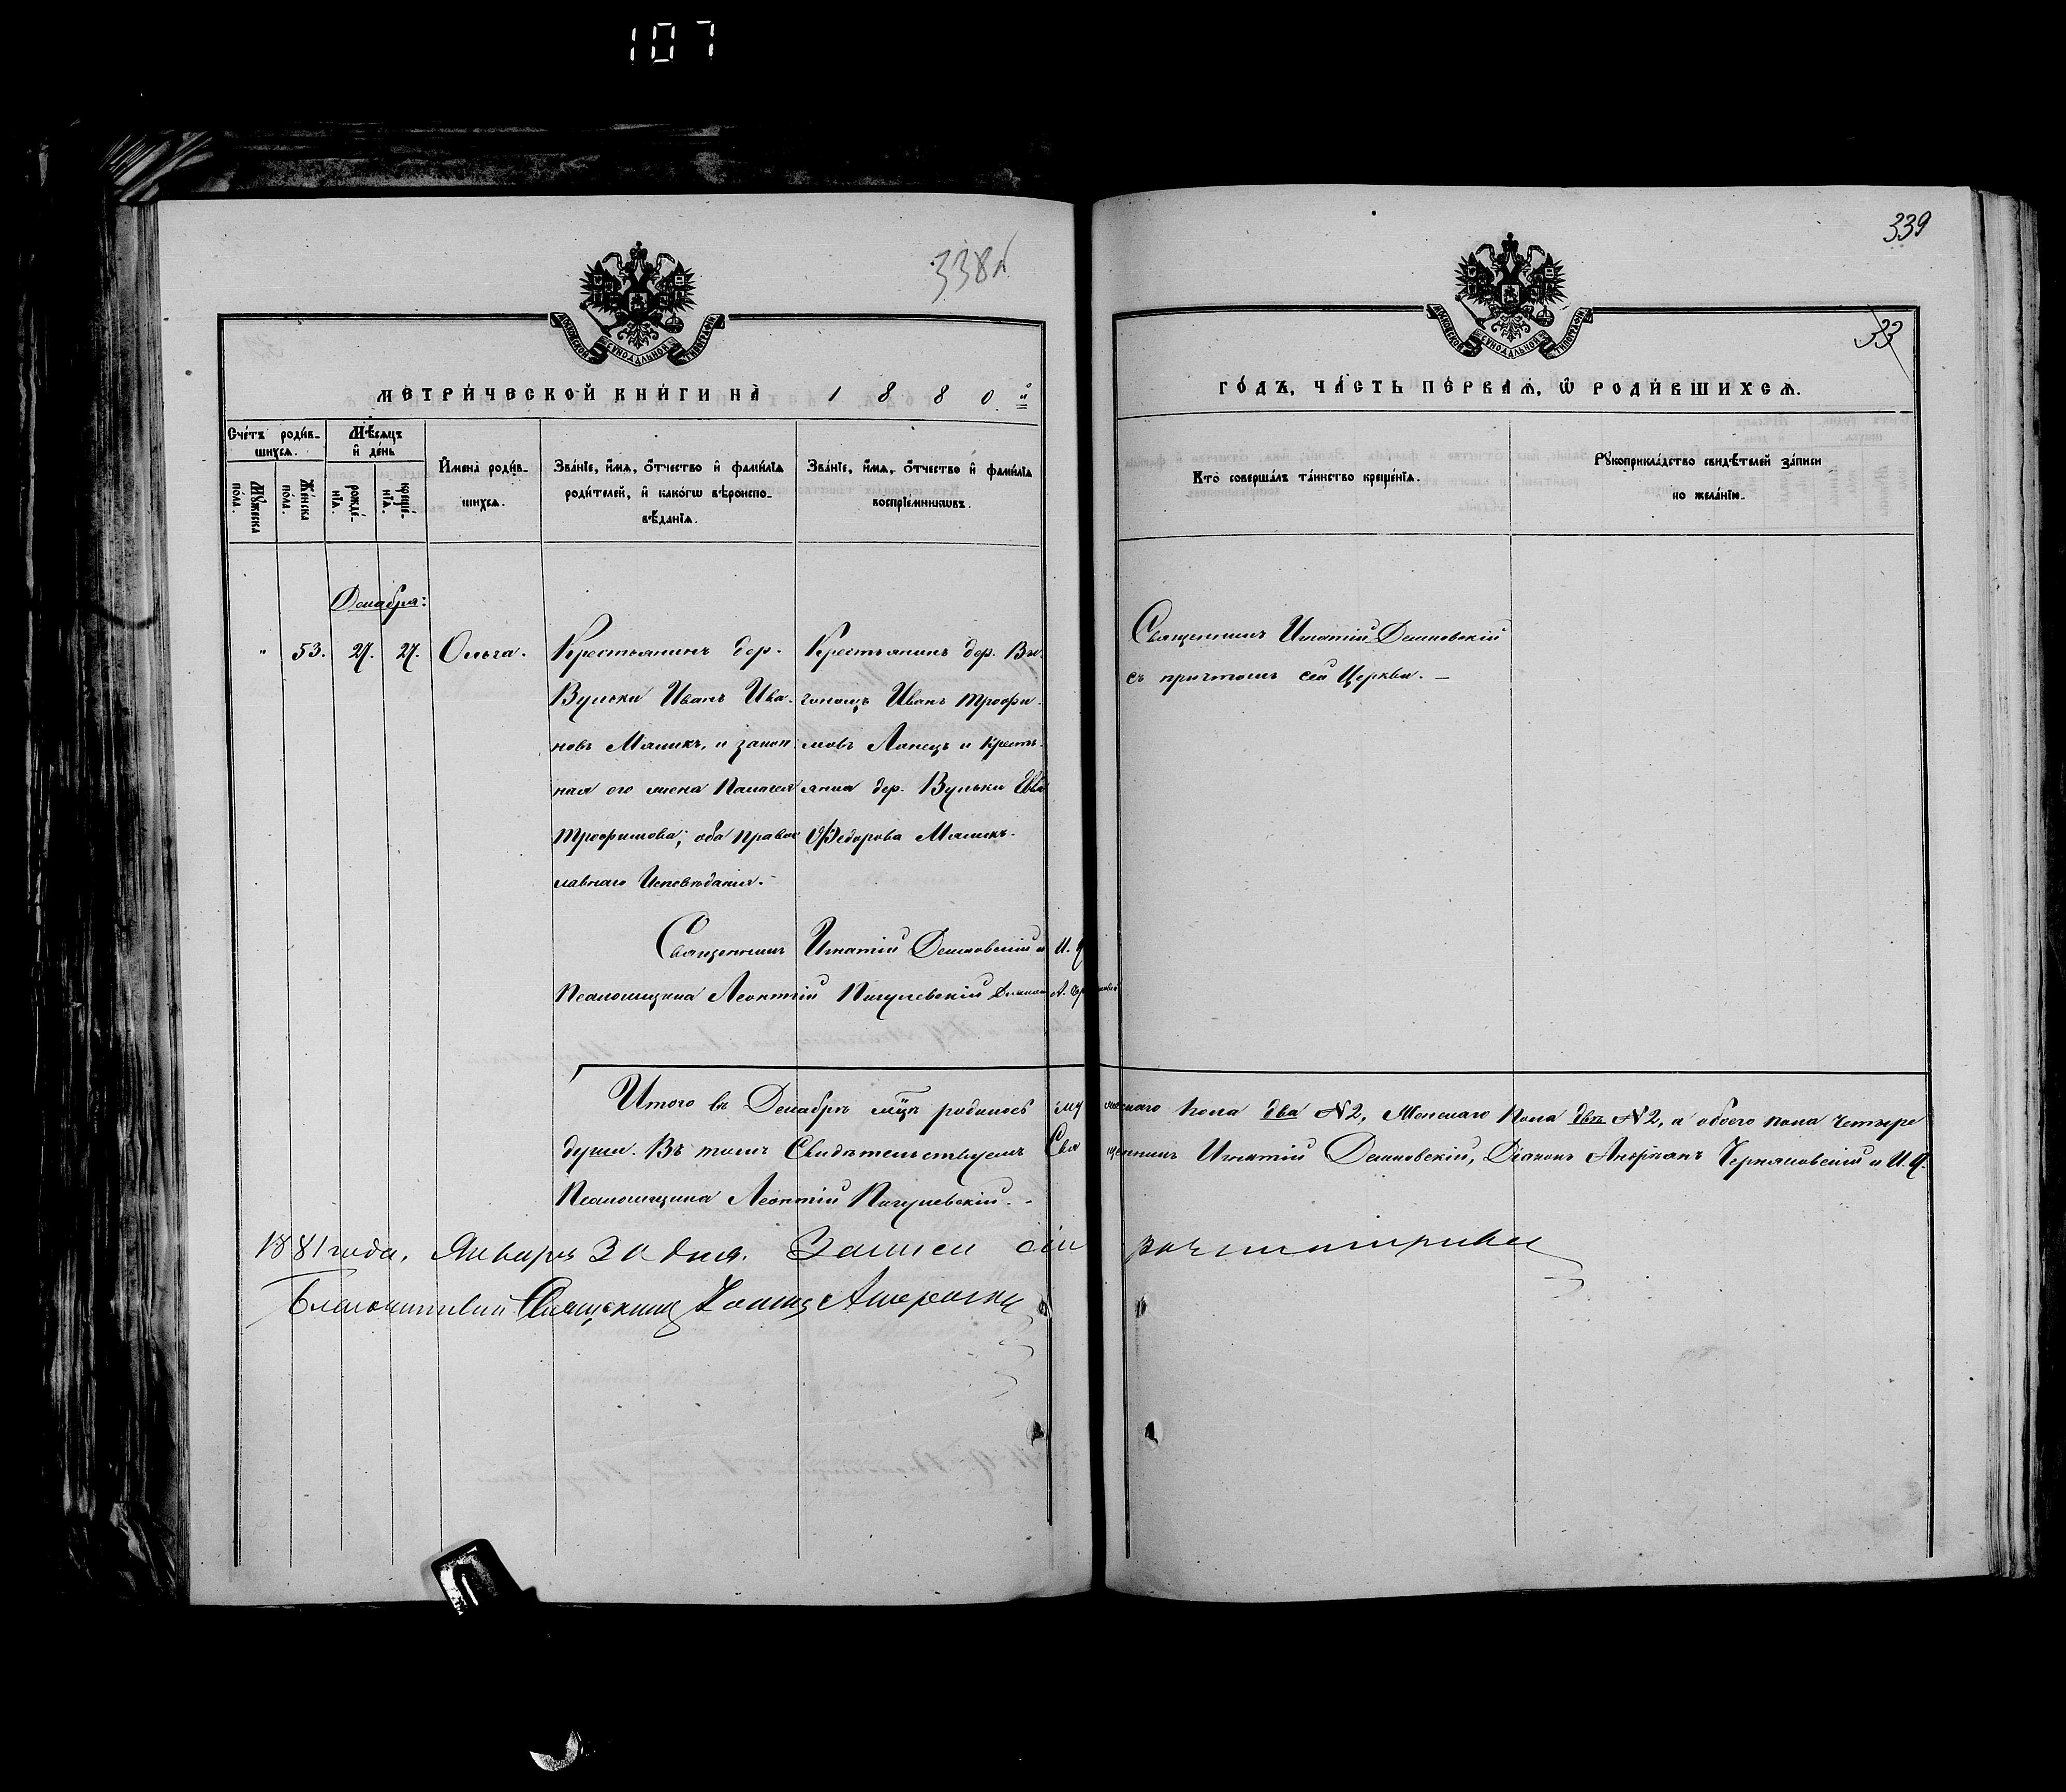 107
338
339
33
МОСКОВСКОЙ СѴНОДАЛЬНОЙ ТИПОГРАФІИ
МОСКОВСКОЙ СѴНОДАЛЬНОЙ ТИПОГРАФІИ
МЕТРИ́ЧЕСКОЙ КНИ́ГИ НА̀ 1880й
ГО́ДЪ, ЧА́СТЬ ПЕ́РВАѦ, Ѡ РОДИ́ВШИХСѦ.
Сче́тъ роди́в-
шихсѧ.
Мꙋ́жеска
по́ла.
Же́нска
по́ла.
Мѣ́сѧцъ
и҆ де́нь
рожде́-
нїѧ.
креще́-
нїѧ.
И҆мена̀ роди́в-
шихсѧ.
Зва́нїе, и҆́мѧ, о҆́тчество и҆ фами́лїѧ
роди́телей, и҆ како́гѡ вѣроиспо-
вѣ́данїѧ.
Зва́нїе, и҆́мѧ, о҆́тчество и҆ фами́лїѧ
воспрїе́мникѡвъ.
Кто̀ соверша́лъ та́инство креще́нїѧ.
Рꙋкоприкла́дство свидѣ́телей за́писи
по жела́нїю.
Декабря:
" 53. 27. 27. Ольга.
Крестьянинъ дер.
Вульки Иванъ Ива-
новъ Маликъ, и закон-
ная его жена Палагея
Трофимова; оба право-
славнаго Исповѣданія.
Крестьянинъ дер. Вы-
гонощъ Иванъ Трофи-
мовъ Лапецъ и Крестья-
янка дер. Вульки
Федорова Малик.
Священникъ Игнатій Демновскій
съ причтомъ сей Церкви. –
Священникъ Игнатій Демновскій и И. Д.
Псаломщика Леонтій Пигулевскій Діаконъ А.
Итого въ Декабрѣ мцѣ родилось мужескаго пола два № 2, Женскаго пола двѣ № 2, а обоего пола четыре
души. Въ томъ Свидѣтельствуемъ Священникъ Игнатій Демновскій, Діаконъ Андріанъ Черняковскій и И. Д.
Псаломщика Леонтій Пигулевскій. –
1881 года, Января 30 дня. Записи сіи
Благочинный Священникъ Іоаннъ